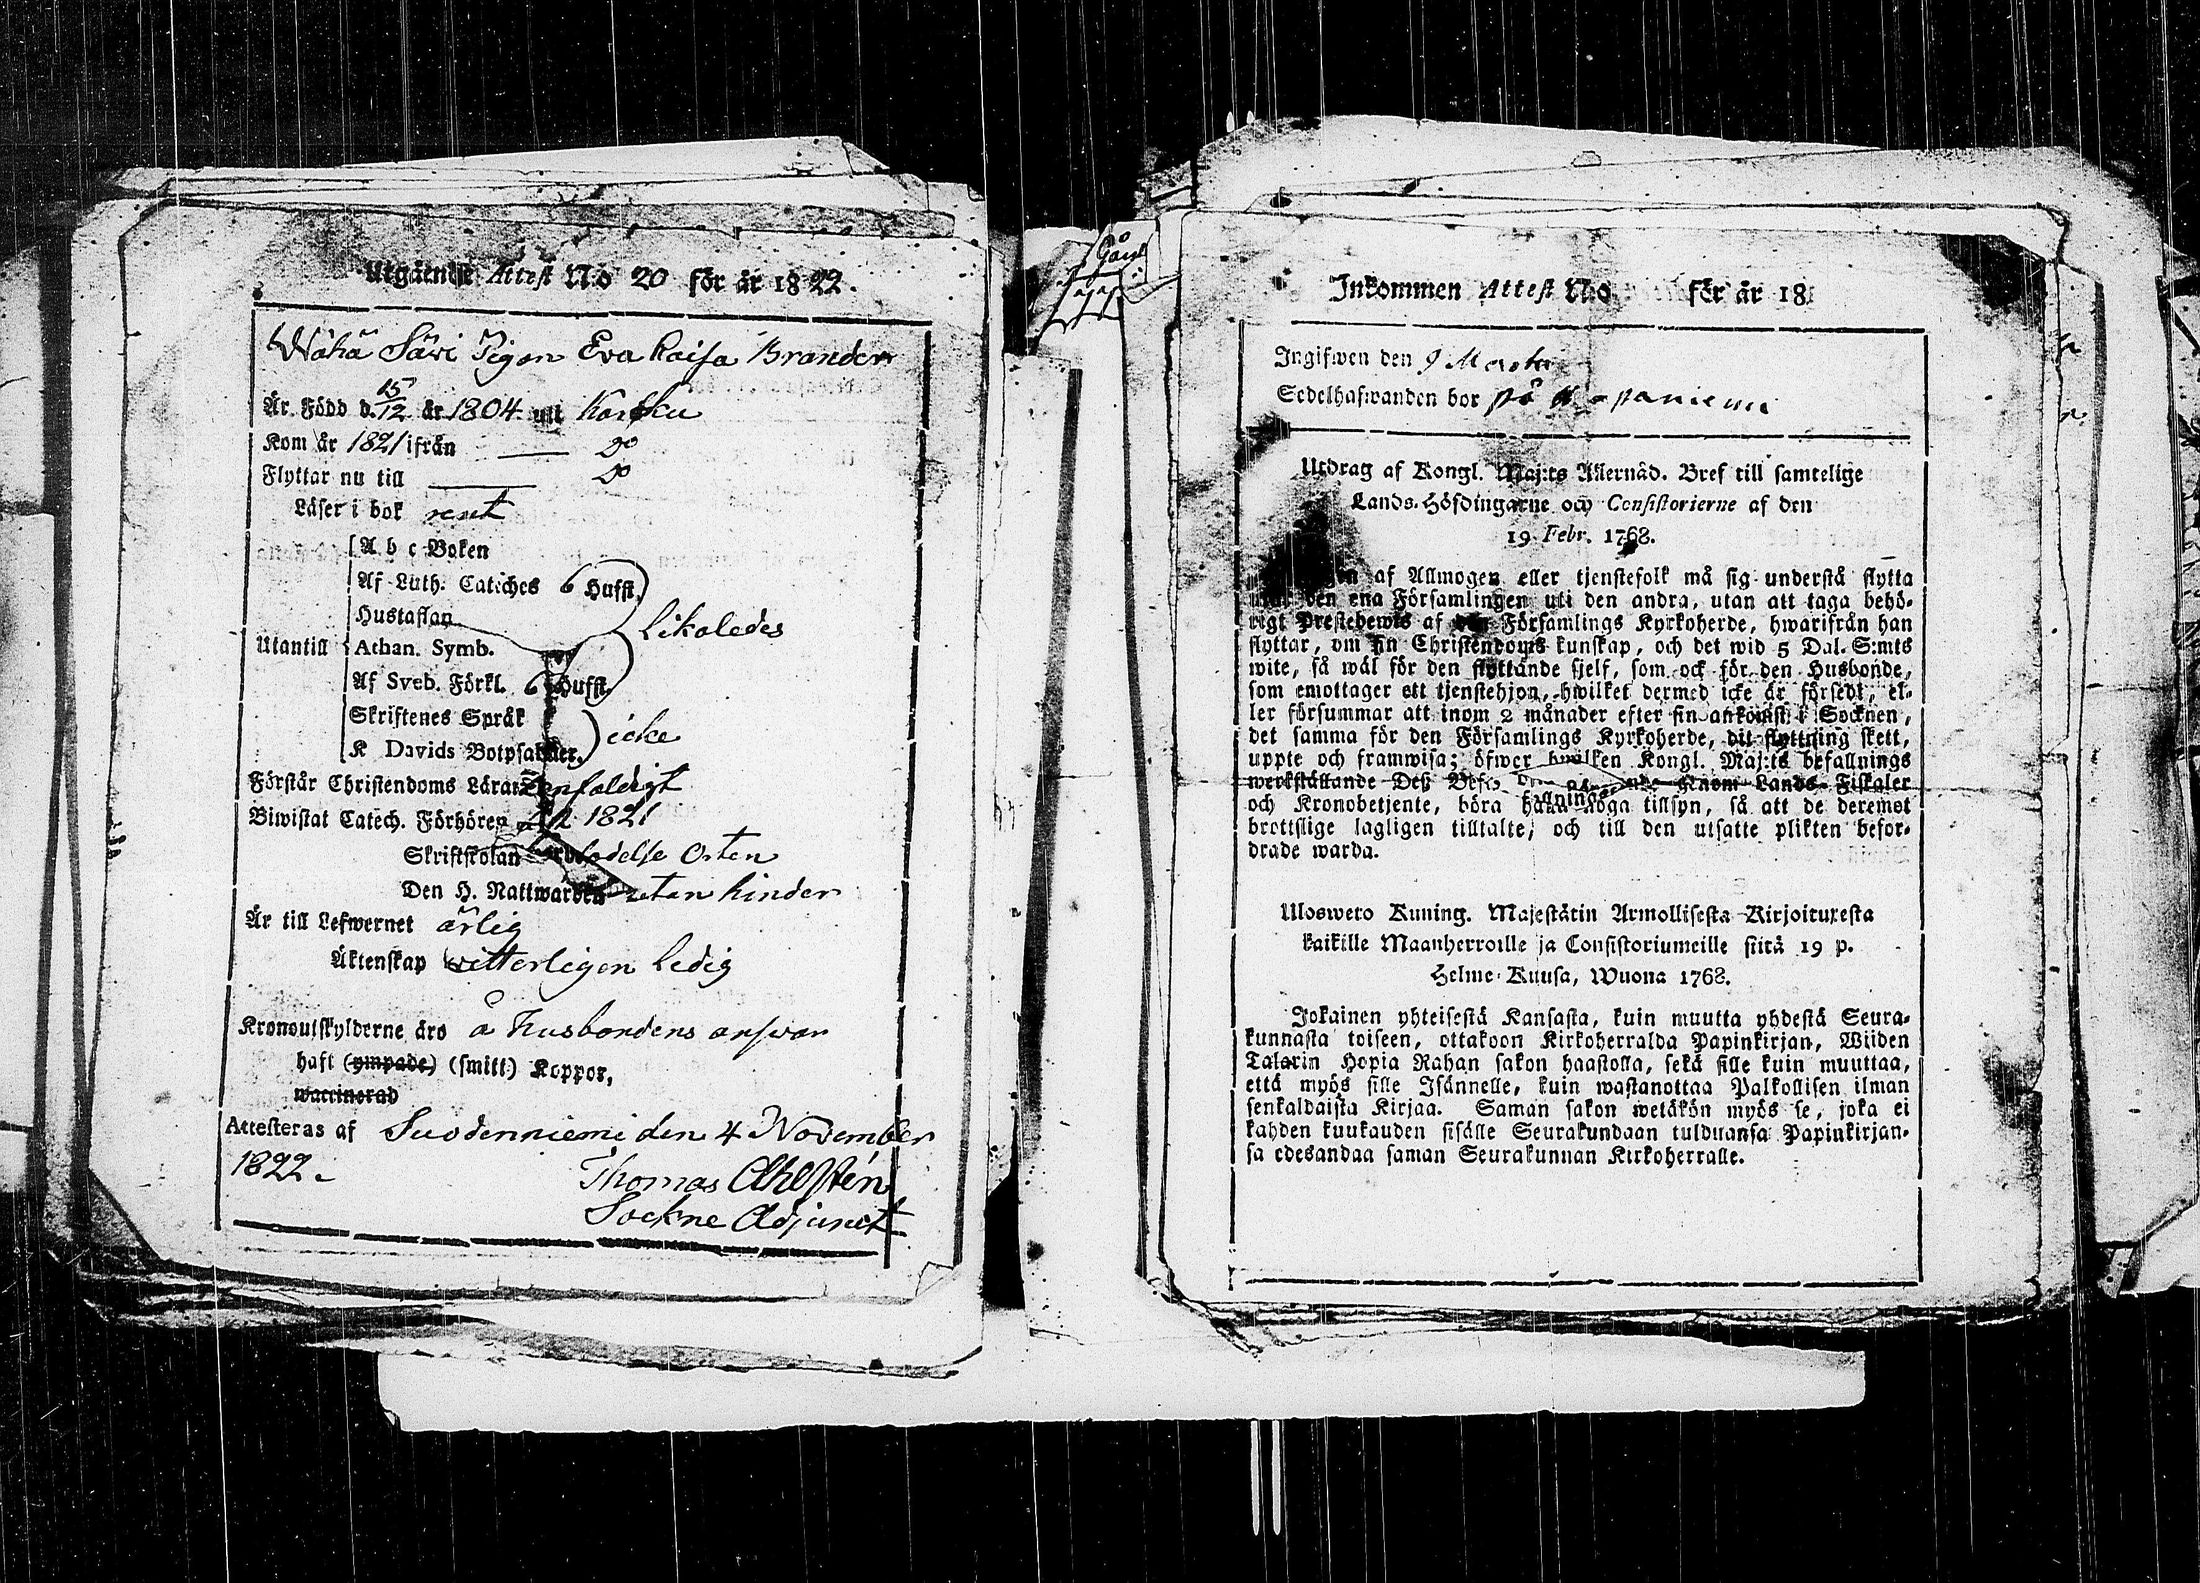 Utgående Attest N:o 20 för år 1822.
Wähä Säwi Pigan Eva Kaisa Brander
Är Född d. 15/12 år 1804 uti Karkku
Kom år 1821 ifrån — Do
Flyttar nu till — Do
Läser i bok rent
Utantill
A b c Boken
Af Luth. Catéches 6 Hufst.
Hustaflan
likaledes
Athan. Symb.
Af Sveb. Förkl. 6 Hufst.
Skriftenes Språk
icke
K Davids Botpsalmer.
Förstår Christendoms Läran Enfaldigt
Biwistat Catech. Förhören 1821
Skriftskolan Orten
Den H. Nattwarden utan hinder
Är till Lefwernet ärlig
Äktenskap witterligen ledig
Kronoutskylderne äro å Husbondens answar
haft (ympade) (smitt) Koppor,
waccinerad
Attesteras af Suodenniemi den 4 November
1822.
Thomas Ahlstén
Sockne Adjunct
Gård
Inkommen Attest N:o för år 18
Ingifwen den 9 Martii
Sedelhafwanden bor på
Utdrag af Kongl. Maj:ts Allernåd. Bref till samtelige
Lands-Höfdingarne och Consistorierne af den
19 Febr. 1768.
af Allmogen eller tjenstefolk må sig understå flytta
ifrån den ena Församlingen uti den andra, utan att taga behö-
rigt Prestebewis af den Församlings Kyrkoherde, hwarifrån han
flyttar, om sin Christendoms kunskap, och det wid 5 Dal. S:mts
wite, så wäl för den flyttande sjelf, som ock för den Husbonde,
som emottager ett tjenstehjon, hwilket dermed icke är försedt, el-
ler försummar att inom 2 månader efter sin ankomst i Socknen,
det samma för den Församlings Kyrkoherde, dit flyttning skett,
uppte och framwisa; öfwer hwilken Kongl. Maj:ts befallnings
werkställande Deß Befallningshafwande samt Lands-Fiskaler
och Kronobetjente, böra hafwa noga tillsyn, så att de deremot
brottslige lagligen tilltalte, och till den utsatte plikten befor-
drade warda.
Uloswero Kuning. Majestätin Armollisesta Kirjoituxesta
kaikille Maanherroille ja Consistoriumeille siitä 19 p.
Helme-Kuusa, Wuona 1768.
Jokainen yhteisestä Kansasta, kuin muutta yhdestä Seura-
kunnasta toiseen, ottakoon Kirkoherralda Papinkirjan, Wiiden
Talarin Hopia Rahan sakon haastolla, sekä sille kuin muuttaa,
että myös sille Isännelle, kuin wastanottaa Palkollisen ilman
senkaldaista Kirjaa. Saman sakon wetäkön myös se, joka ei
kahden kuukauden sisälle Seurakundaan tulduansa Papinkirjan-
sa edesandaa saman Seurakunnan Kirkoherralle.